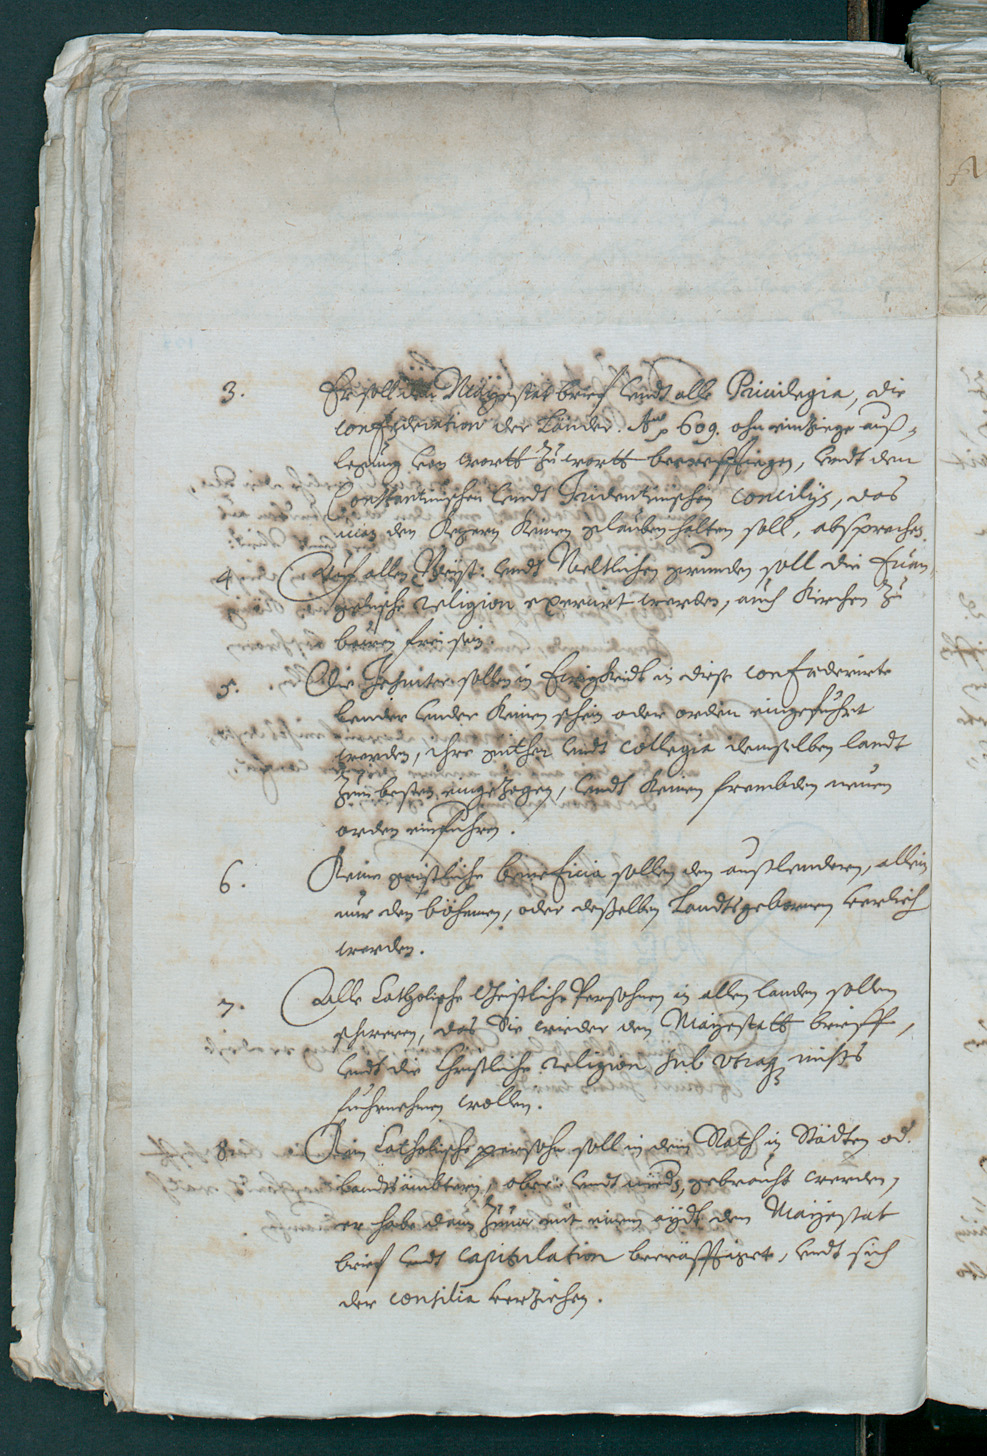 3. Er soll den Mayestat brief vndt alle Priuilegia, die
confœderation der Länder. Aº 609. ohn eintzige auß=
legung von wortt zu wortt becrefftigen, vndt dem
Constantinischen vndt Tridentinischen concilijs, das
man den Kezern Keinen glauben halten soll, absprechen.
4. Auf allen Geist: vndt Weltlichen grunden soll die Euan
gelische religion exercirt werden, auch Kirchen zu
bauen frei sein.
5. Die Jesuiter sollen in Ewigkeidt in diese confœderirte
lender vnder Keinen schein oder orden eingeführt
werden, ihre guther vndt collegia demselben landt
zum besten eingezogen, vndt Keinen frembden neuen
orden einführen.
6. Keine geistliche beneficia sollen den außlendern, allein
nur den böhmen, oder deßelben Landtsgebornen verliehen
werden.
7. Alle Catholische Geistliche Persohnen in allen landen sollen
schweren, das Sie wieder den Mayestatt brieff,
vndt die Christliche religion sub vtraq nichts
fuhrnehmen wollen.
8. Kein Catholische persohn soll in dem Rath in Städten od.
Landtsämbtern, ober vndt nieder, gebraucht werden,
er habe dan zuuor mit einem eydt den Mayestat
brief vndt capitulation becräfftiget, vndt sich
der concilia verziehen.